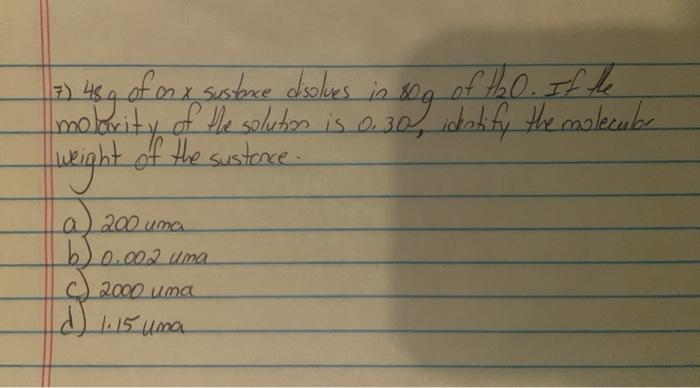 7) 48g of on x sustance disolves in 80g of H2O. If the
molarity of the solution is 0.30, identify the molecular
weight of the sustance.
a) 200 uma
b) 0.002 uma
c) 2000 uma
d) 1.15 uma